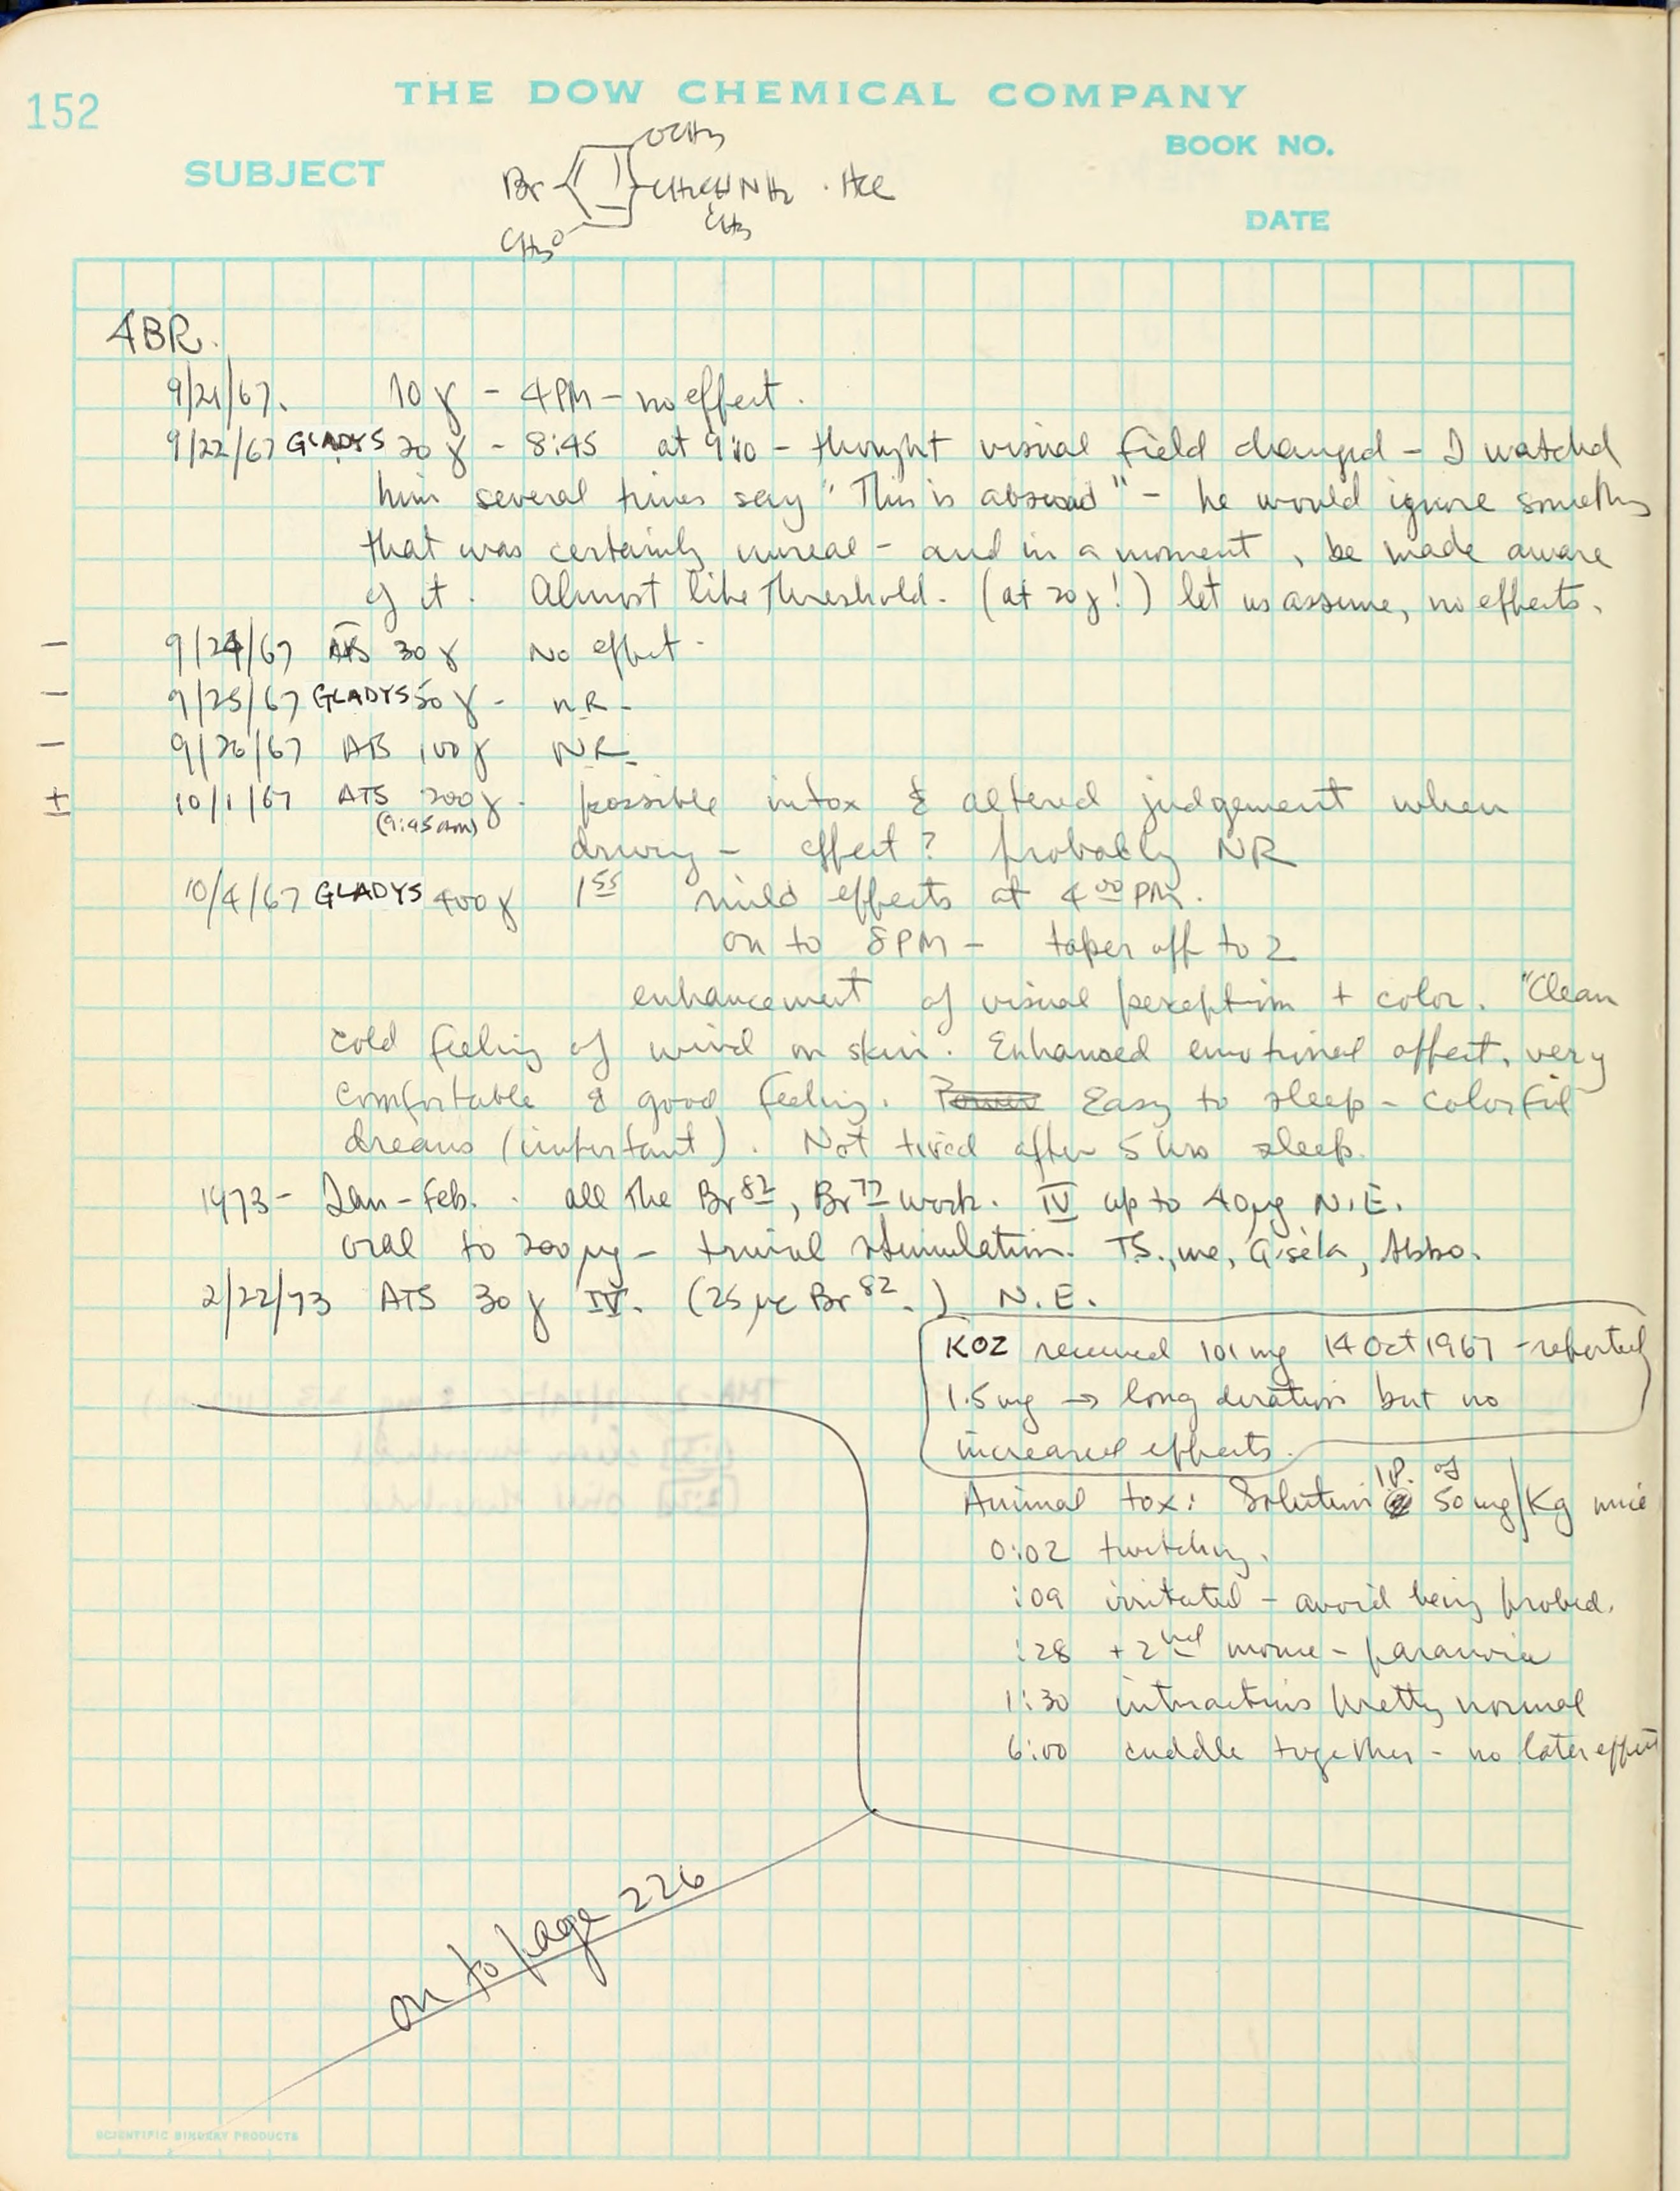 152
THE DOW CHEMICAL COMPANY
BOOK NO.
SUBJECT
DATE
OCH3
Br CH2CHNH2 · HCl
CH3
CH3O
4BR.
9/21/67. 10 γ - 4PM - no effect.
9/22/67 GLADYS 20 γ - 8:45 at 9:10 - thought visual field changed - I watched
him several times say "This is absurd" - he would ignore something
that was certainly unreal - and in a moment, be made aware
of it. Almost like threshold. (at 20γ!) let us assume, no effects.
- 9/24/67 ATS 30 γ No effect.
- 9/25/67 GLADYS 50 γ - NR -
- 9/26/67 AB 100 γ NR -
± 10/1/67 ATS 200 γ. possible intox & altered judgement when
(9:45 am)
driving - effect? probably NR
10/4/67 GLADYS 400 γ 1 55 mild effects at 4 00 PM.
on to 8PM - taper off to 2
enhancement of visual perception + color. "Clean
cold feeling of wind on skin. Enhanced emotional affect, very
comfortable & good feeling. Easy to sleep - colorful
dreams (important). Not tired after 5 hrs sleep.
1973 - Jan - Feb. all the Br 82, Br 77 work. IV up to 40 μg N.E.
oral to 200 μg - trivial stimulation. TS., me, Gisela, Abbo.
2/22/73 ATS 30 γ IV. (25 μc Br 82.) N.E.
KOZ received 101 mg 14 Oct 1967 - reported
1.5 mg → long duration but no
increased effects.
Animal tox: Solution IP. of 50 mg/Kg mice
0:02 twitching.
:09 irritated - avoid being probed.
:28 + 2nd mouse - paranoia
1:30 interactions pretty normal
6:00 cuddle together - no later effect
on to page 226
SCIENTIFIC BINDERY PRODUCTS